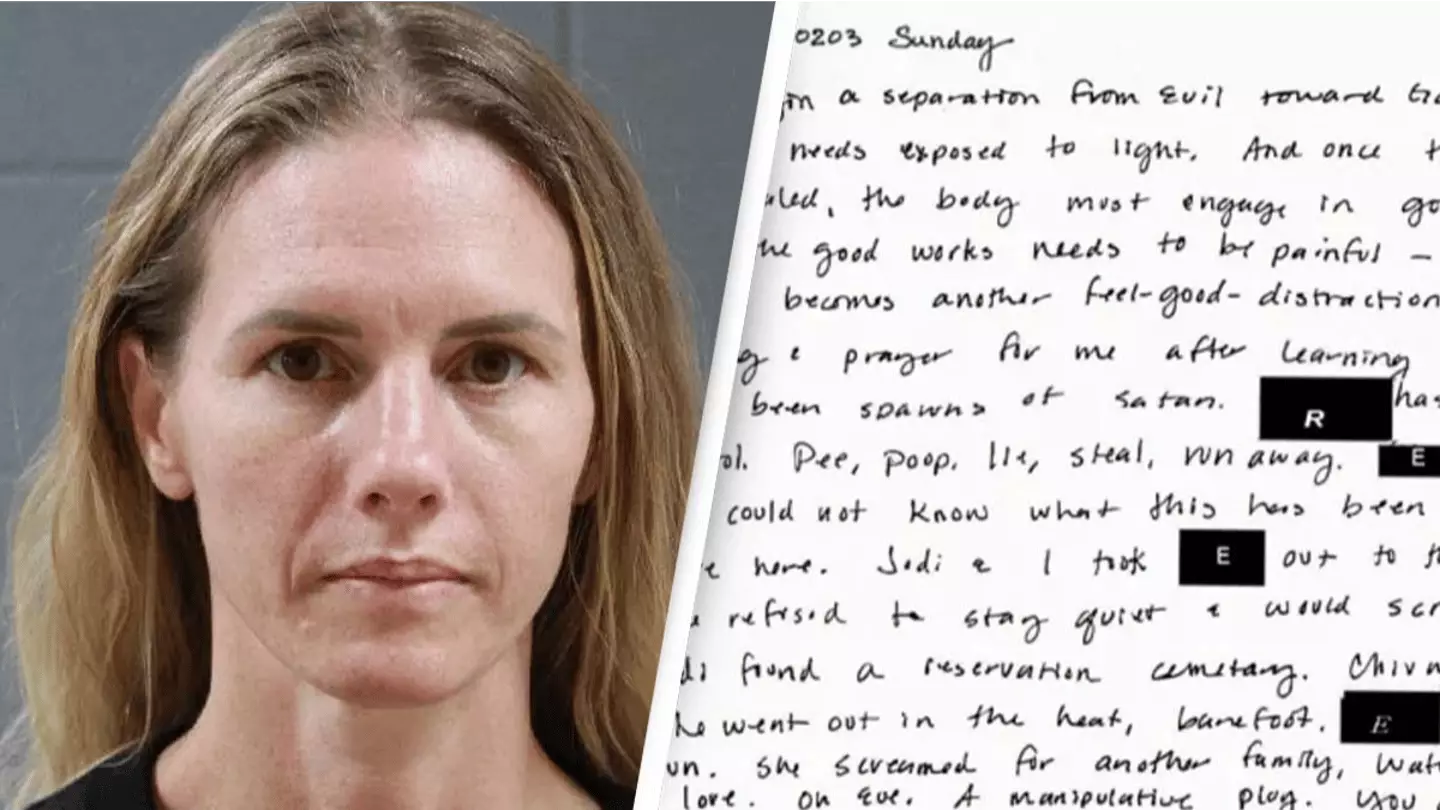 0203 Sunday
in a separation from Evil toward
needs exposed to light. And once
the body must engage in
good works needs to be painful –
becomes another feel-good-distraction
& prayer for me after learning
been spawns of Satan. R has
Pee, poop, lie, steal, run away. E
could not know what this has been
here. Jodi & I took E out to
refused to stay quiet & would
found a reservation cemetary.
went out in the heat, barefoot. E
She screamed for another family,
love. Oh Eve. A manipulative plug. You